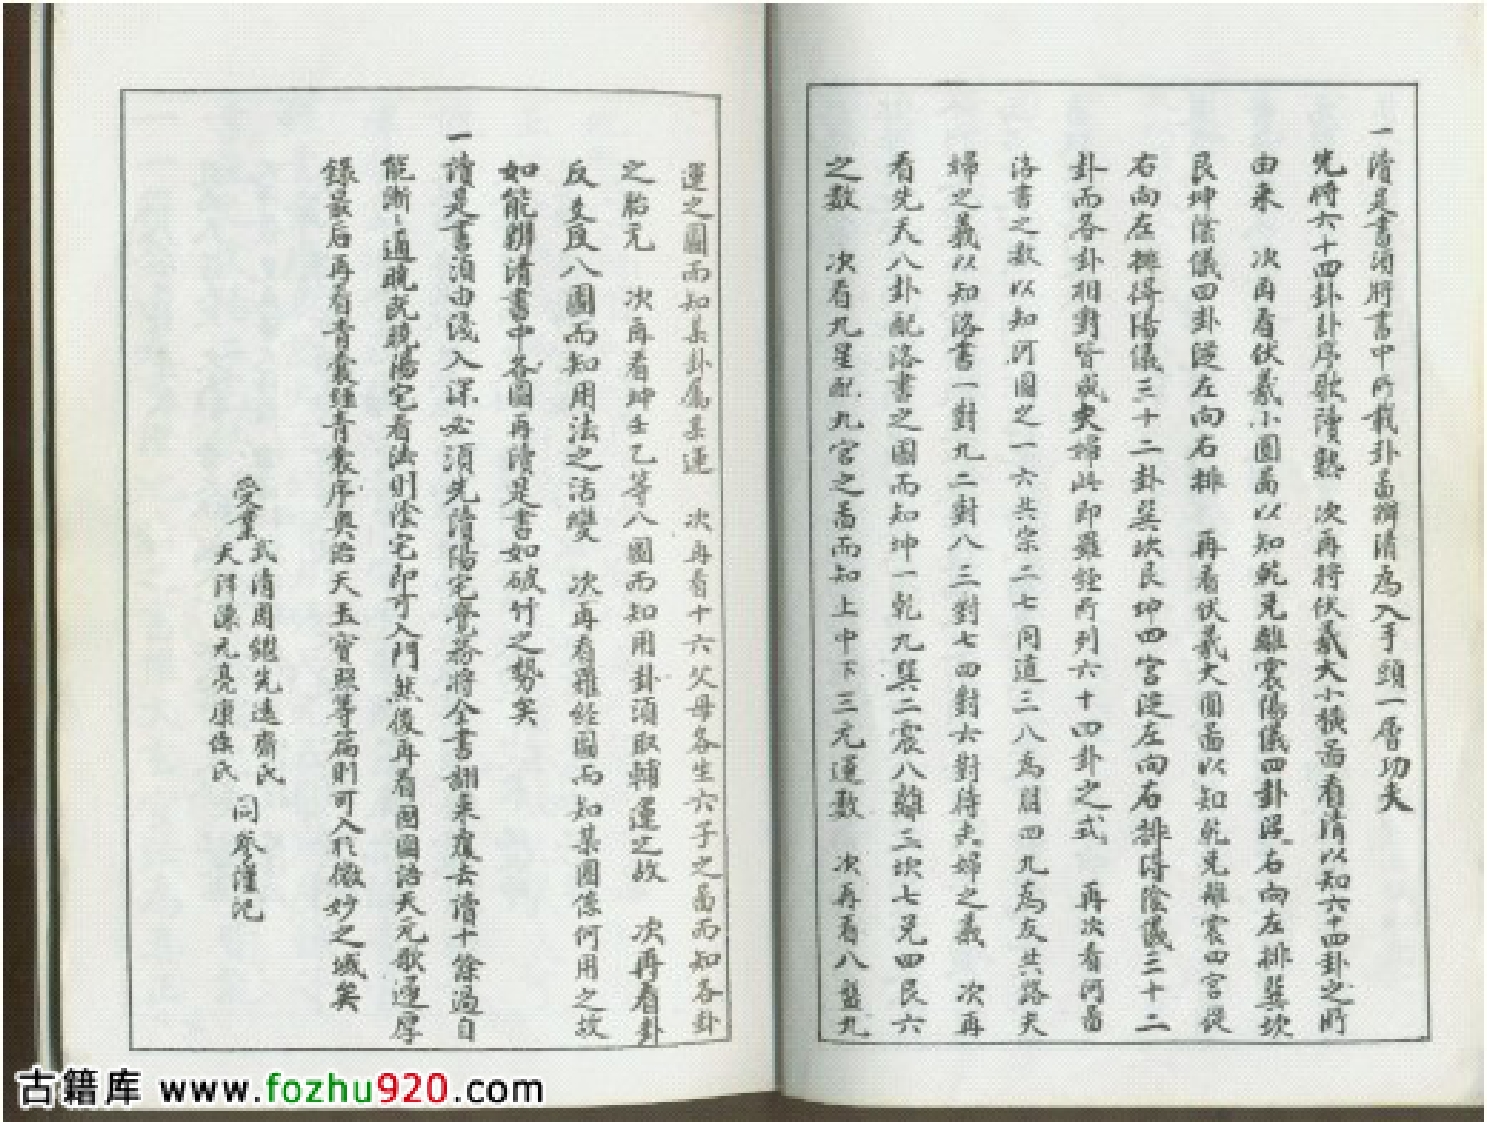 一讀是書須將書中所載卦啚辦清為入手頭一層功夫
先將六十四卦卦序歌讀熟 次再將伏羲大小橫啚看清以知六十四卦之所
由來 次再看伏羲小圓啚以知乾兌離震陽儀四卦從右向左排巽坎
艮坤陰儀四卦從左向右排 再看伏羲大圓啚以知乾兌離震四宮從
右向左排得陽儀三十二卦巽坎艮坤四宮從左向右排得陰儀三十二
卦而各卦相對皆成夫婦此即羅經所列六十四卦之式 再次看河啚
洛書之数以知河圖之一六共宗二七同道三八為朋四九為友共路夫
婦之義以知洛書一對九二對八三對七四對六對待夫婦之義 次再
看先天八卦配洛書之圖而知坤一乾九巽二震八離三坎七兌四艮六
之数 次看九星配九宮之啚而知上中下三元運数 次再看八盤九
運之圖而知某卦属某運 次再看十六父母各生六子之啚而知各卦
之胎元 次再看坤壬乙等八圖而知用卦須取輔運之故 次再看卦
反爻反八圖而知用法之活變 次再看羅經圖而知某圖係何用之故
如能辦清書中各圖再讀是書如破竹之勢矣
一讀是書須由淺入深必須先讀陽宅覺蒂將全書翻来覆去讀十餘過自
能漸〻通曉既曉陽宅看法則陰宅即可入門然後再看國國語天元歌運厚
錄最后再看青囊經青囊序奧語天玉寶照等篇則可入於微妙之域矣
受業
武清周繼先遠齋氏
天津陳元亮康侯氏
同參謹記
古籍库 www.fozhu920.com